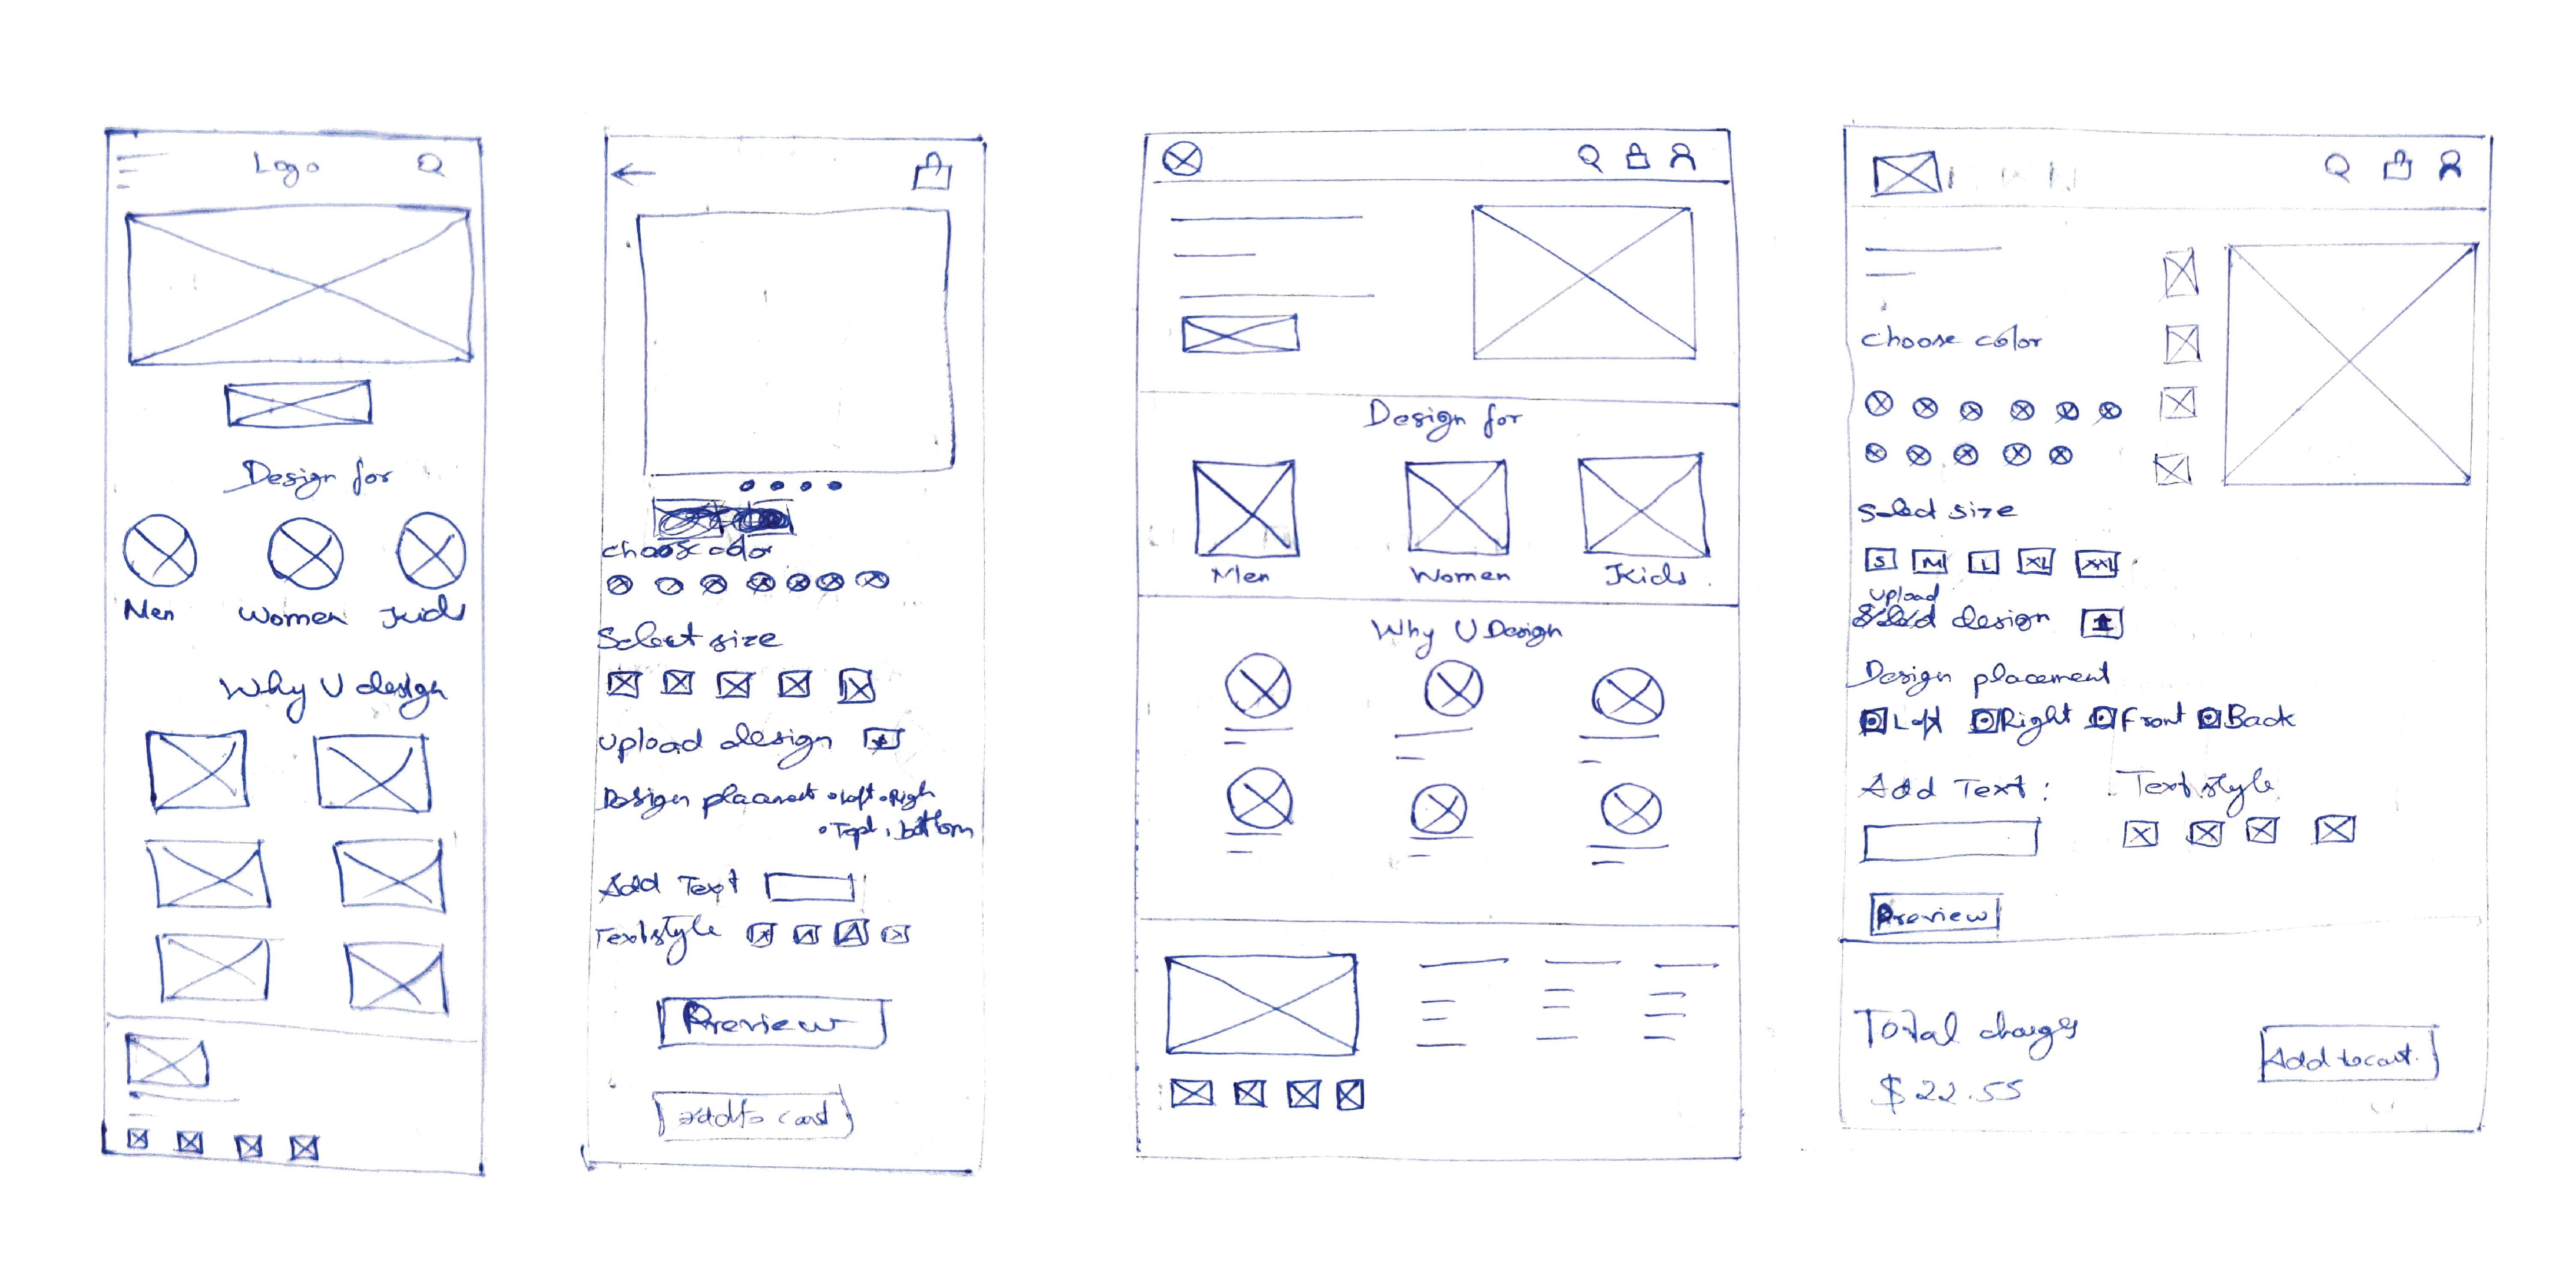 Logo
Design for
Men Women Kids
Why U design
choose color
Select size
Upload design
Design placement • Left • Righ
• Topt • bottom
Add Text
Text style
Preview
Add to card
Design for
Men Women Kids
Why U Design
choose color
Select size
S M L XL XXL
Upload
design
Design placement
Left Right Front Back
Add Text : Text style
Preview
Total charges
$22.55
Add to cart